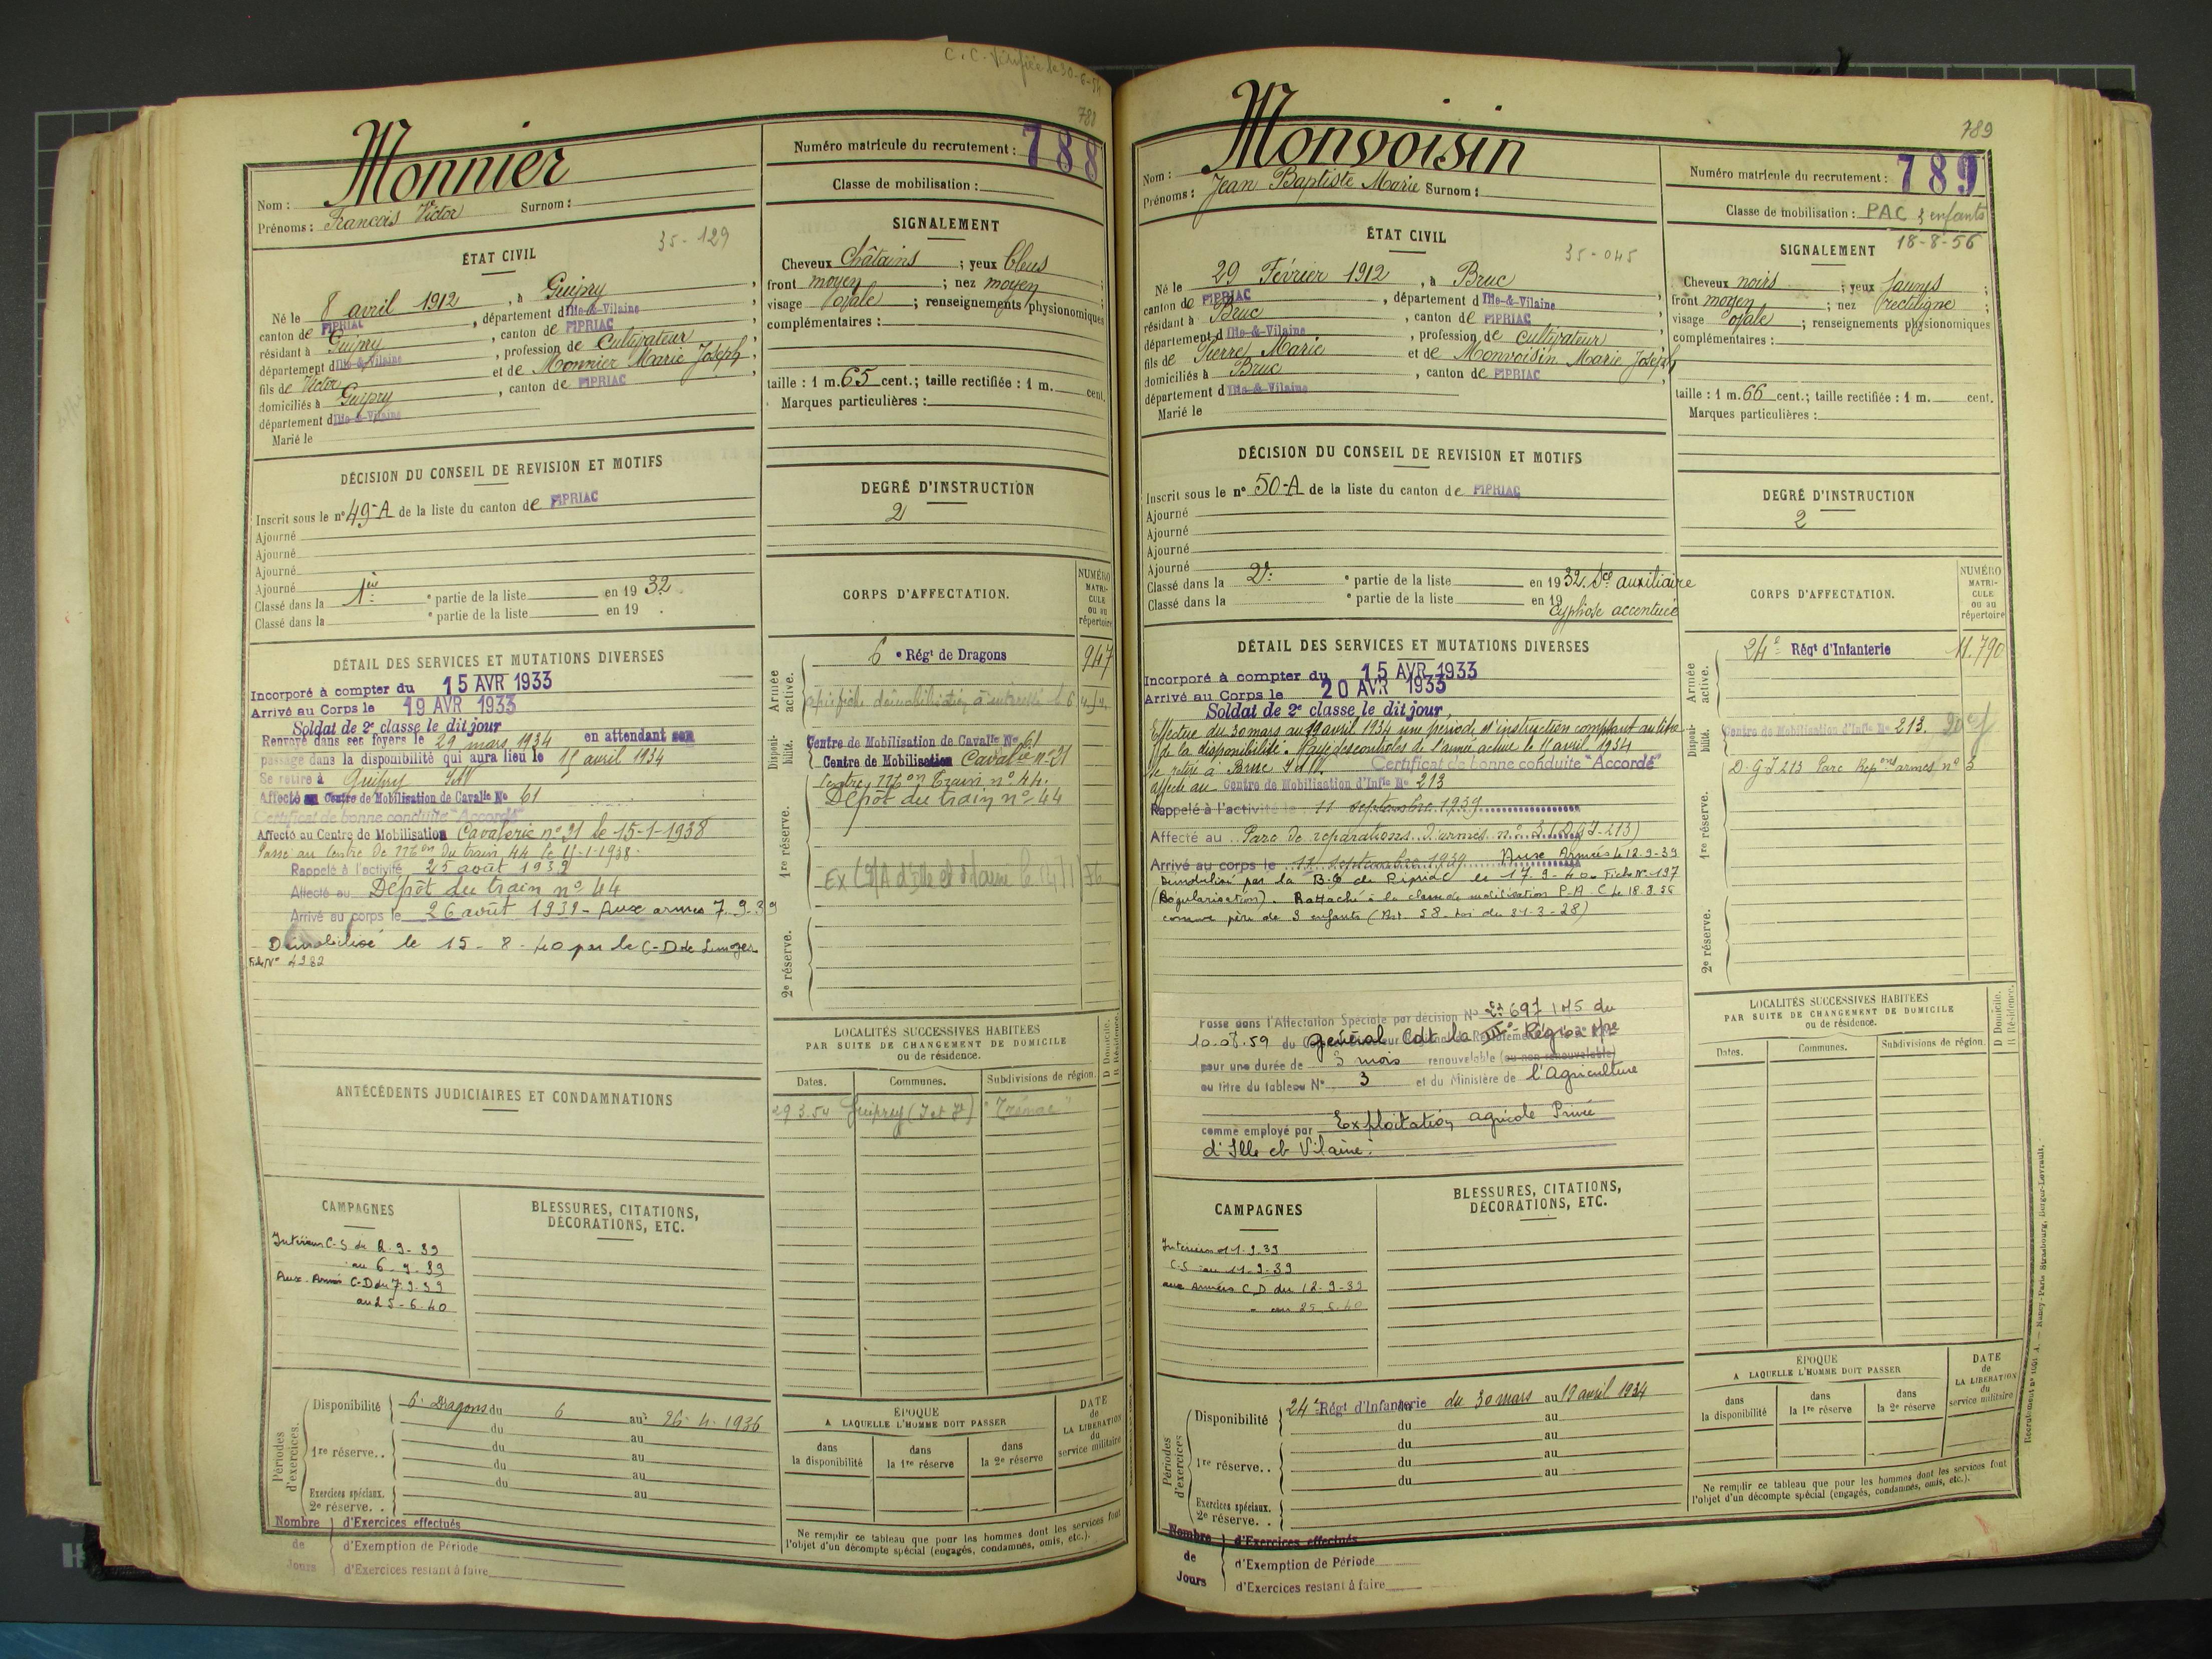 C.C. Vérifiée le 30-6-54
788
Monnier
Nom :
Prénoms : François Victor Surnom :
Numéro matricule du recrutement : 788
Classe de mobilisation :
ÉTAT CIVIL
35-129
Né le 8 avril 1912, à Guipry,
canton de PIPRIAC, département d Ille-&-Vilaine,
résidant à Guipry, canton de PIPRIAC,
département d Ille-&-Vilaine, profession de Cultivateur,
fils de Victor et de Monnier Marie Joseph,
domiciliés à Guipry, canton de PIPRIAC,
département d Ille-&-Vilaine
Marié le
SIGNALEMENT
Cheveux Châtains ; yeux bleus
front moyen ; nez moyen ;
visage ovale ; renseignements physionomiques
complémentaires :
taille : 1 m. 65 cent.; taille rectifiée : 1 m. cent.
Marques particulières :
DÉCISION DU CONSEIL DE REVISION ET MOTIFS
Inscrit sous le n° 49-A de la liste du canton de PIPRIAC
Ajourné
Ajourné
Ajourné
Ajourné
Classé dans la 1re e partie de la liste en 19 32.
Classé dans la e partie de la liste en 19 .
DEGRÉ D'INSTRUCTION
2
DÉTAIL DES SERVICES ET MUTATIONS DIVERSES
Incorporé à compter du 15 AVR 1933
Arrivé au Corps le 19 AVR 1933
Soldat de 2e classe le dit jour
Renvoyé dans ses foyers le 29 mars 1934 en attendant son
passage dans la disponibilité qui aura lieu le 15 avril 1934
Se retire à Guipry I&V
Affecté au Centre de Mobilisation de Cavalle No 61
Certificat de bonne conduite "Accordé"
Affecté au Centre de Mobilisation Cavalerie n° 21 le 15-1-1938
Passé au Centre de Mon du train 44 le 15-1-1938.
Rappelé à l'activité 25 août 1939
Affecté au Dépôt du train n° 44
Arrivé au corps le 26 août 1939 - Aux armées 7.9.39
Démobilisé le 15-8-40 par le C-D de Limoges
Fiche N° 4282
CORPS D'AFFECTATION.
NUMÉRO MATRICULE ou au répertoire
Armée active.
6 e Régt de Dragons 947
Disponibilité.
Centre de Mobilisation de Cavalle No 61
Centre de Mobilisation Cavalie n° 21
1re réserve.
Centre Mon Train n° 44.
Dépôt du train n° 44
2e réserve.
ANTÉCÉDENTS JUDICIAIRES ET CONDAMNATIONS
LOCALITÉS SUCCESSIVES HABITÉES
PAR SUITE DE CHANGEMENT DE DOMICILE
ou de résidence.
D Domicile.
R Résidence.
Dates. Communes. Subdivisions de région.
29.3.54 Guipry (I et V)
CAMPAGNES
Intérieur C-S du 2.9.39
au 6.9.39
Aux Armées C-D du 7.9.39
au 25-6-40
BLESSURES, CITATIONS,
DÉCORATIONS, ETC.
Périodes d'exercices.
Disponibilité 6e Dragons du 6 au 26.4.1936
du au
1re réserve.. du au
du au
du au
Exercices spéciaux.
2e réserve. . au
Nombre de Jours
d'Exercices effectués
d'Exemption de Période
d'Exercices restant à faire
ÉPOQUE
A LAQUELLE L'HOMME DOIT PASSER
dans la disponibilité
dans la 1re réserve
dans la 2e réserve
DATE de LA LIBÉRATION du service militaire
Ne remplir ce tableau que pour les hommes dont les services font
l'objet d'un décompte spécial (engagés, condamnés, omis, etc.).
789
Monvoisin
Nom :
Prénoms : Jean Baptiste Marie Surnom :
Numéro matricule du recrutement : 789
Classe de mobilisation : PAC 3 enfants
18-8-56
ÉTAT CIVIL
35-045
Né le 29 Février 1912, à Bruc
canton de PIPRIAC, département d Ille-&-Vilaine,
résidant à Bruc, canton de PIPRIAC,
département d Ille-&-Vilaine, profession de cultivateur,
fils de Pierre Marie et de Monvoisin Marie Joseph,
domiciliés à Bruc, canton de PIPRIAC,
département d Ille-&-Vilaine
Marié le
SIGNALEMENT
Cheveux noirs ; yeux jaunes ;
front moyen ; nez rectiligne ;
visage ovale ; renseignements physionomiques
complémentaires :
taille : 1 m. 66 cent.; taille rectifiée : 1 m. cent.
Marques particulières :
DÉCISION DU CONSEIL DE REVISION ET MOTIFS
Inscrit sous le n° 50-A de la liste du canton de PIPRIAC
Ajourné
Ajourné
Ajourné
Ajourné
Classé dans la 2e e partie de la liste en 19 32. Sce auxiliaire
Classé dans la e partie de la liste en 19 Cyphose accentuée
DEGRÉ D'INSTRUCTION
2
DÉTAIL DES SERVICES ET MUTATIONS DIVERSES
Incorporé à compter du 15 AVR 1933
Arrivé au Corps le 20 AVR 1933
Soldat de 2e classe le dit jour,
Effectue du 30 mars au 19 avril 1934 une période d'instruction comptant au titre
de la disponibilité. Rayé des contrôles de l'armée active le 11 avril 1934
Se retire à Bruc I et V. Certificat de bonne conduite "Accordé"
affecté au Centre de Mobilisation d'Infie No 213
Rappelé à l'activité le 11 septembre 1939
Affecté au Parc de réparations d'armes n° 3 (D.G.I-213)
Arrivé au corps le 11 septembre 1939 Aux Armées le 12-9-39
Démobilisé par la B.G. de Pipriac le 17-9-40. Fiche N° 197
(Régularisation). Rattaché à la classe de mobilisation P.A.C le 18.8.56
comme père de 3 enfants (Art. 58 - Loi du 31-3-28)
Passé dans l'Affectation Spéciale par décision No 697 145 du
10.07.59 du Général Cdt la IIIe Région Mre
pour une durée de 3 mois renouvelable (ou non renouvelable)
au titre du tableau No 3 et du Ministère de l'Agriculture
comme employé par Exploitation agricole Privée
d'Ille et Vilaine.
CORPS D'AFFECTATION.
NUMÉRO MATRICULE ou au répertoire
Armée active.
24e Régt d'Infanterie 11.790
Disponibilité.
Centre de Mobilisation d'Infie No 213.
D.G.I 213 Parc Repons armes n° 3
1re réserve.
2e réserve.
LOCALITÉS SUCCESSIVES HABITÉES
PAR SUITE DE CHANGEMENT DE DOMICILE
ou de résidence.
D Domicile.
R Résidence.
Dates. Communes. Subdivisions de région.
CAMPAGNES
Intérieur 11.9.39
C.S au 11.9.39
aux Armées C.D du 12-9-39
au 25.6.40
BLESSURES, CITATIONS,
DÉCORATIONS, ETC.
Périodes d'exercices
Disponibilité 24e Régt d'Infanterie du 30 mars au 19 avril 1934
du au
1re réserve.. du au
du au
du au
Exercices spéciaux.
2e réserve. .
Nombre de Jours
d'Exercices effectués
d'Exemption de Période
d'Exercices restant à faire
ÉPOQUE
A LAQUELLE L'HOMME DOIT PASSER
dans la disponibilité
dans la 1re réserve
dans la 2e réserve
DATE de LA LIBÉRATION du service militaire
Ne remplir ce tableau que pour les hommes dont les services font
l'objet d'un décompte spécial (engagés, condamnés, omis, etc.).
Nancy-Paris Strasbourg, Berger-Levrault.